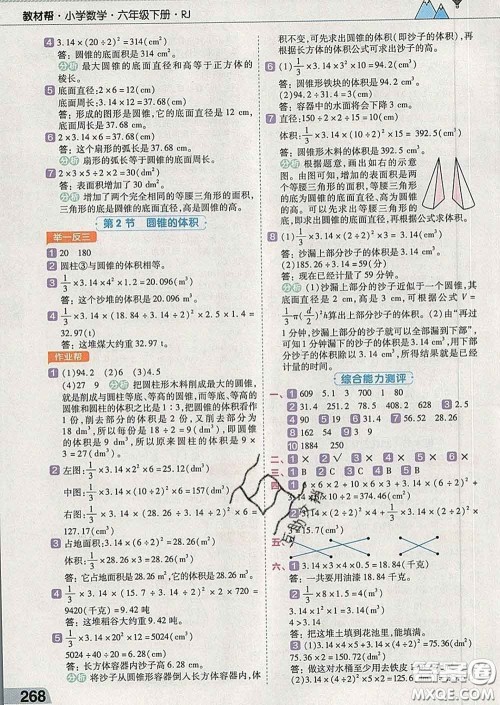 教材帮·小学数学·六年级下册·RJ
4 3.14×(20÷2)²=314(cm²)
答:圆锥的底面面积是 314 cm²。
分析 最大圆锥的底面直径和高等于正方体的
棱长。
5 底面直径:2×6=12(cm)
底面周长:3.14×12=37.68(cm)
答:形成的图形是圆锥,它的底面直径是 12 cm,
底面周长是 37.68 cm。
6 2×3.14×6=37.68(cm)
答:扇形的弧长是 37.68 cm。
分析 扇形的弧长等于圆锥的底面周长。
7 5×(2×3)÷2×2=30(dm²)
答:表面积增加了 30 dm²。
分析 增加了两个完全相同的等腰三角形的面积,
三角形的底是圆锥的底面直径,高是圆锥的高。
第 2 节 圆锥的体积
举一反三
1 20 180
2 圆柱③与圆锥的体积相等。
3 1/3×3.14×4²×1.2=20.096(m³)
答:这个沙堆的体积是 20.096 m³。
4 1/3×3.14×(18.84÷3.14÷2)²×2.5×1.4=
32.97(t)
答:这堆煤大约重 32.97 t。
作业帮
1 (1)94.2 (2)6 (3)16
(4)27 9 分析 把圆柱形木料削成最大的圆锥,
就是削成与圆柱等底、等高的圆锥,而等底、等高的
圆锥和圆柱的体积之比是 1∶3,把圆锥体积看作
1 份,圆柱体积就是 3 份,削去 2 份,而削去部分为
18 dm³,所以每份是 18÷2=9(dm³),即圆锥
的体积是 9×1=9(dm³),所以原来圆柱体积是 9×
3=27(dm³)。
2 左图:1/3×3.14×2²×6=25.12(dm³)
中图:1/3×3.14×(10÷2)²×6=157(cm³)
右图:1/3×3.14×(28.26÷3.14÷2)²×6=
127.17(cm³)
3 占地面积:1/3×28.26×3=28.26(m²)
体积:1/3×28.26×3=28.26(m³)
答:它占地面积是 28.26 m²,体积是 28.26 m³。
4 1/3×3.14×(4÷2)²×1.5×1500=
9420(千克)=9.42 吨
答:这堆稻谷大约重 9.42 吨。
5 1/3×3.14×(20÷2)²×48=5024(cm³)
5024÷40÷20=6.28(cm)
答:长方体容器内沙子高 6.28 cm。
分析 将沙子从圆锥形容器倒入长方体容器内,体
268
积不变,可先求出圆锥的体积(即沙子的体积),再
根据长方体的体积公式可求出沙子的高。
6 (1)1/3×3.14×3²×10=94.2(cm³)
答:圆锥形铁块的体积是 94.2 cm³。
(2)94.2÷31.4=3(cm)
答:容器中的水面将会下降 3 cm。
7 直径:75×2÷15=10(cm)
体积:1/3×3.14×(10÷2)²×15=392.5(cm³)
答:圆锥形木料的体积是 392.5 cm³。
分析 根据题意,画出如右的示意
图。由图可知,增加的面积就是两
个等腰三角形的面积之和,等腰三
角形的高是圆锥的高,底是圆锥的
底面直径。根据三角形的面积公式
可以先求出等腰三角形的底,即圆
锥的底面直径。
8 (1)1/3×3.14×(2÷2)²×3=3.14(cm³)
答:沙漏上部分的沙子有 3.14 cm³。
答:现在已经计量了 59 分钟。
分析 (1)沙漏上部分的沙子近似于一个圆锥,其
体积可以用圆锥的体积公式计算。根据公式 V=
1/3π(d/2)²h算出沙漏上部分沙子的体积。(2)由“再过
1分钟,沙漏上部的沙子就可以全部漏到下部”,
可知1分钟漏沙子的体积是 3.14 cm³,用下部沙子
的体积除以 3.14 cm³,所得结果就是沙漏已经
计量的时间。
综合能力测评
一、1 609 5.1 3 700 1 80
2 31.4 251.2 3 78.5 4 200.96
5 6.28 6 62.8 7 15.7 8 4 9 3.8
10 1884 250
二、1 × 2 √ 3 × 4 × 5 ×
三、1 B 2 C 3 C 4 A 5 B
五、
六、1 3.14×3×4×0.5=18.84(千克)
答:一共要用油漆 18.84 千克。
4>3.14
答:把这堆土填到花池里,能填满。
3 3.14×(4÷2)²×6=75.36(dm³)
75.36×2=150.72(千克)
答:做这对水桶至少用去铁皮
互助文档
答案圈
MXQE.COM